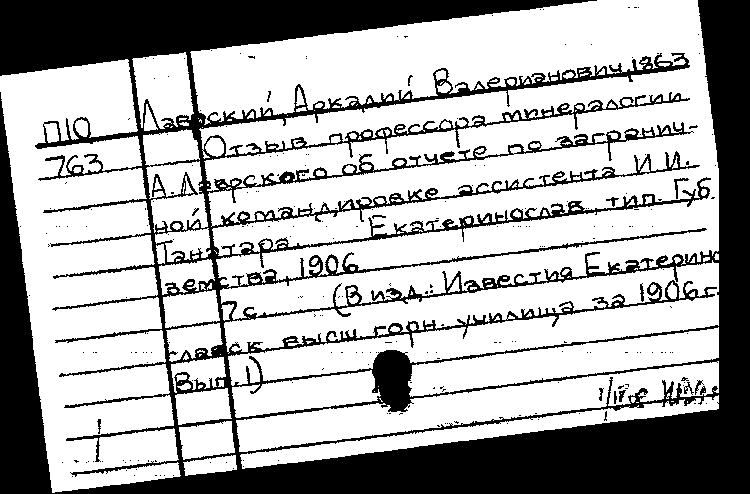 П10 Лаврский, Аркадий Валерианович, 1863
763 Отзыв профессора минералогии
А. Лаврского об отчете по загранич-
ной командировке ассистента И.И.
Танатара. Екатеринослав, тип. Губ
земства, 1906
7 с. (В изд.: Известия Екатерино
славск высш горн. училища за 1906 г.
Вып. 1)